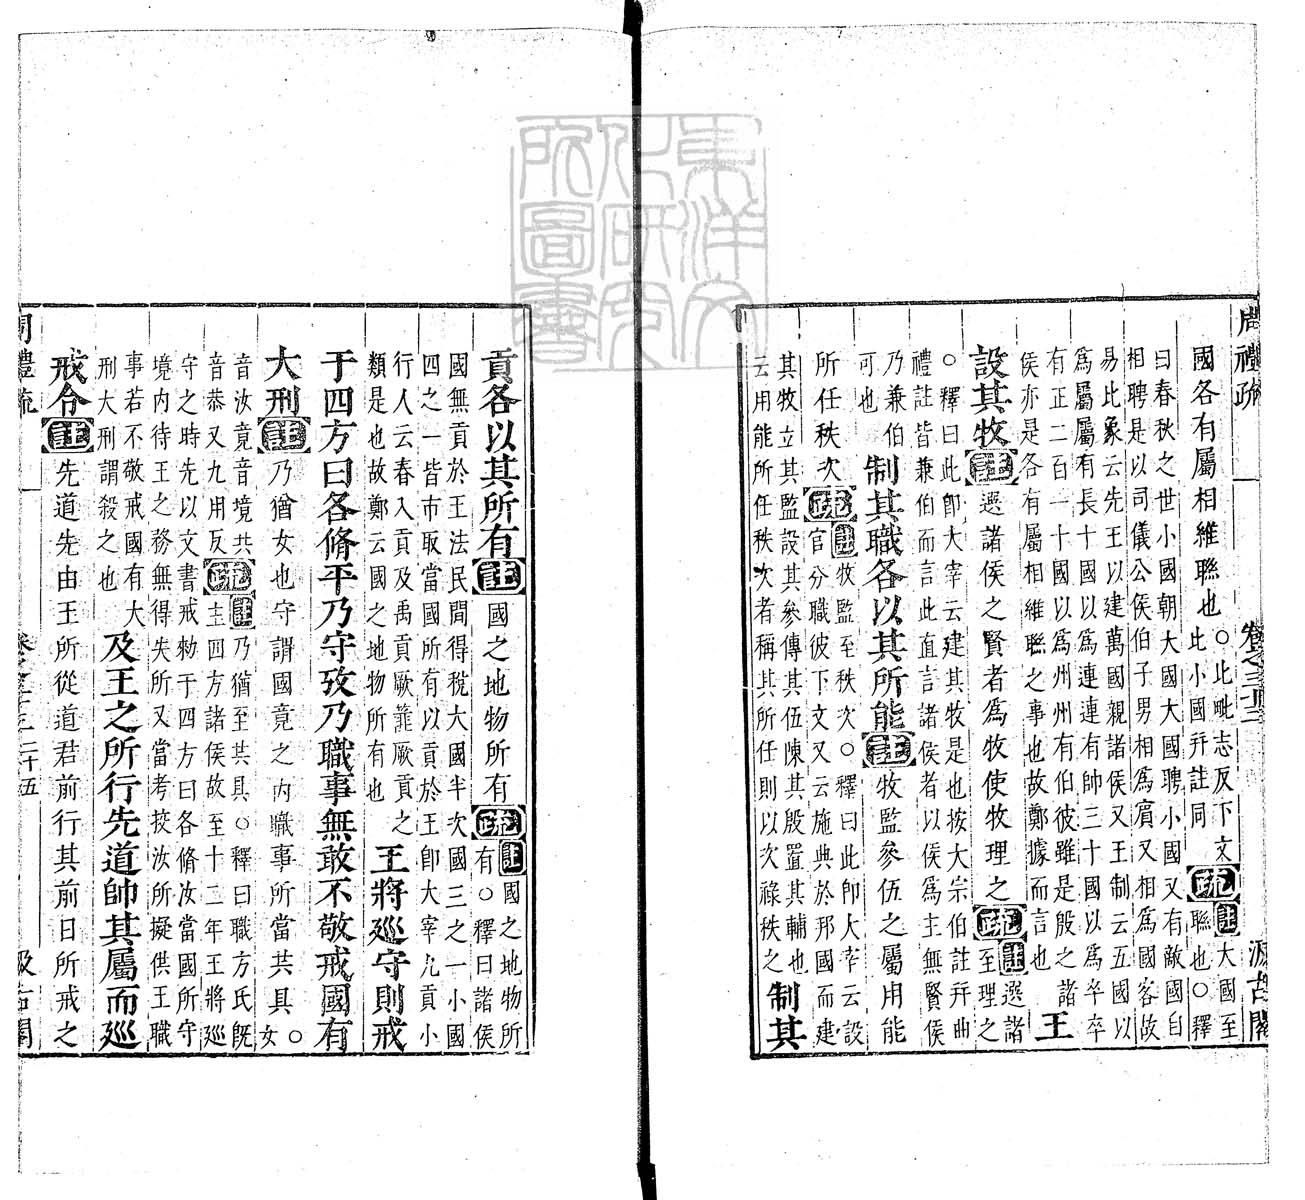 周禮疏 卷之三十三 汲古閣
國各有屬相維聯也○比毗志反下文比小國幷註同疏註大國至聯也○釋
曰春秋之世小國朝大國大國聘小國又有敵國自
相聘是以司儀公侯伯子男相爲賓又相爲國客故
易比象云先王以建萬國親諸侯又王制云五國以
爲屬屬有長十國以爲連連有帥三十國以爲卒卒
有正二百一十國以爲州州有伯彼雖是殷之諸
侯亦是各有屬相維聯之事也故鄭據而言也 王
設其牧註選諸侯之賢者爲牧使牧理之疏註選諸至理之
○釋曰此卽大宰云建其牧是也按大宗伯註幷曲
禮註皆兼伯而言此直言諸侯者以侯爲主無賢侯
乃兼伯可也 制其職各以其所能註牧監參伍之屬用能
所任秩次疏註牧監至秩次○釋曰此卽大宰云設官分職彼下文又云施典於邦國而建
其牧立其監設其參傳其伍陳其殷置其輔也
云用能所任秩次者稱其所任則以次祿秩之 制其
貢各以其所有註國之地物所有疏註國之地物所有○釋曰諸侯
國無貢於王法民間得稅大國半次國三之一小國
四之一皆市取當國所有以貢於王卽大宰九貢小
行人云春入貢及禹貢厥篚厥貢之
類是也故鄭云國之地物所有也 王將巡守則戒
于四方曰各脩平乃守攷乃職事無敢不敬戒國有
大刑註乃猶女也守謂國竟之內職事所當共具○女
音汝竟音境共音恭又九用反疏註乃猶至共具○釋曰職方氏旣主四方諸侯故至十二年王將巡
守之時先以文書戒勑于四方曰各脩汝當國所守
境內待王之務無得失所又當考挍汝所擬供王職
事若不敬戒國有大
刑大刑謂殺之也 及王之所行先道帥其屬而巡
戒令註先道先由王所從道君前行其前日所戒之
周禮疏 卷之三十三 二十五 汲古閣
東洋文化研究所圖書